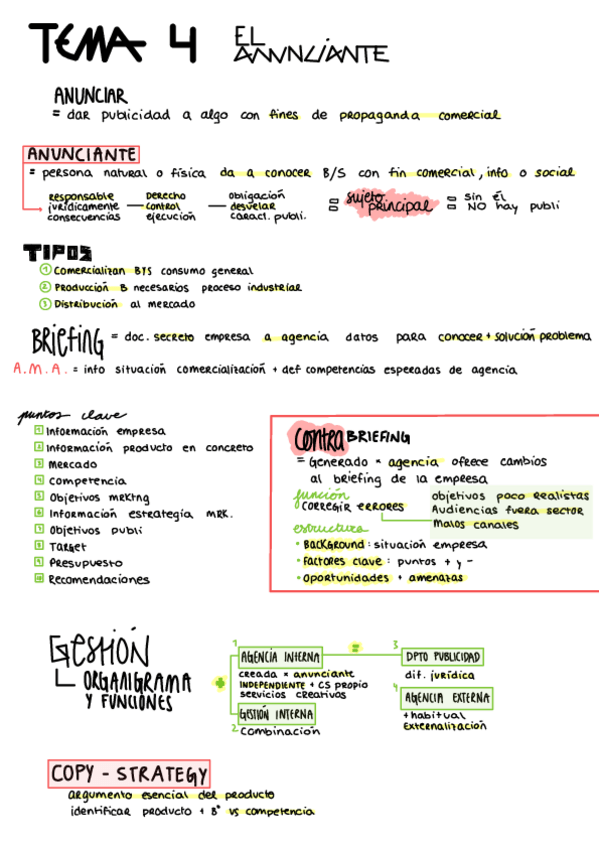 TEMA 4 EL ANUNCIANTE
ANUNCIAR
= dar publicidad a algo con fines de propaganda comercial
ANUNCIANTE
= persona natural o física da a conocer B/S con fin comercial, info o social
responsable jurídicamente consecuencias — Derecho control ejecución — obligación desvelar caract. publi. = sujeto principal = sin él = NO hay publi
TIPOS
1 Comercializan BYS consumo general
2 Producción B necesarios proceso industrial
3 Distribución al mercado
BRIEFING = doc. secreto empresa a agencia datos para conocer + solución problema
A.M.A. = info situación comercialización + def competencias esperadas de agencia
puntos clave
1 Información empresa
2 Información producto en concreto
3 Mercado
4 Competencia
5 Objetivos mrktng
6 Información estrategia mrk.
7 Objetivos publi
8 Target
9 Presupuesto
10 Recomendaciones
CONTRA BRIEFING
= Generado × agencia ofrece cambios
al briefing de la empresa
función
CORREGIR ERRORES
objetivos poco realistas
Audiencias fuera sector
Malos canales
estructura
• Background: situación empresa
• Factores clave: puntos + y -
• Oportunidades + amenazas
GESTIÓN
ORGANIGRAMA
Y FUNCIONES
1 AGENCIA INTERNA
creada × anunciante
INDEPENDIENTE + CS propio
servicios creativos
2 GESTIÓN INTERNA
Combinación
=
3 DPTO PUBLICIDAD
dif. jurídica
4 AGENCIA EXTERNA
+ habitual
Externalización
COPY - STRATEGY
argumento esencial del producto
identificar producto + Bº vs competencia